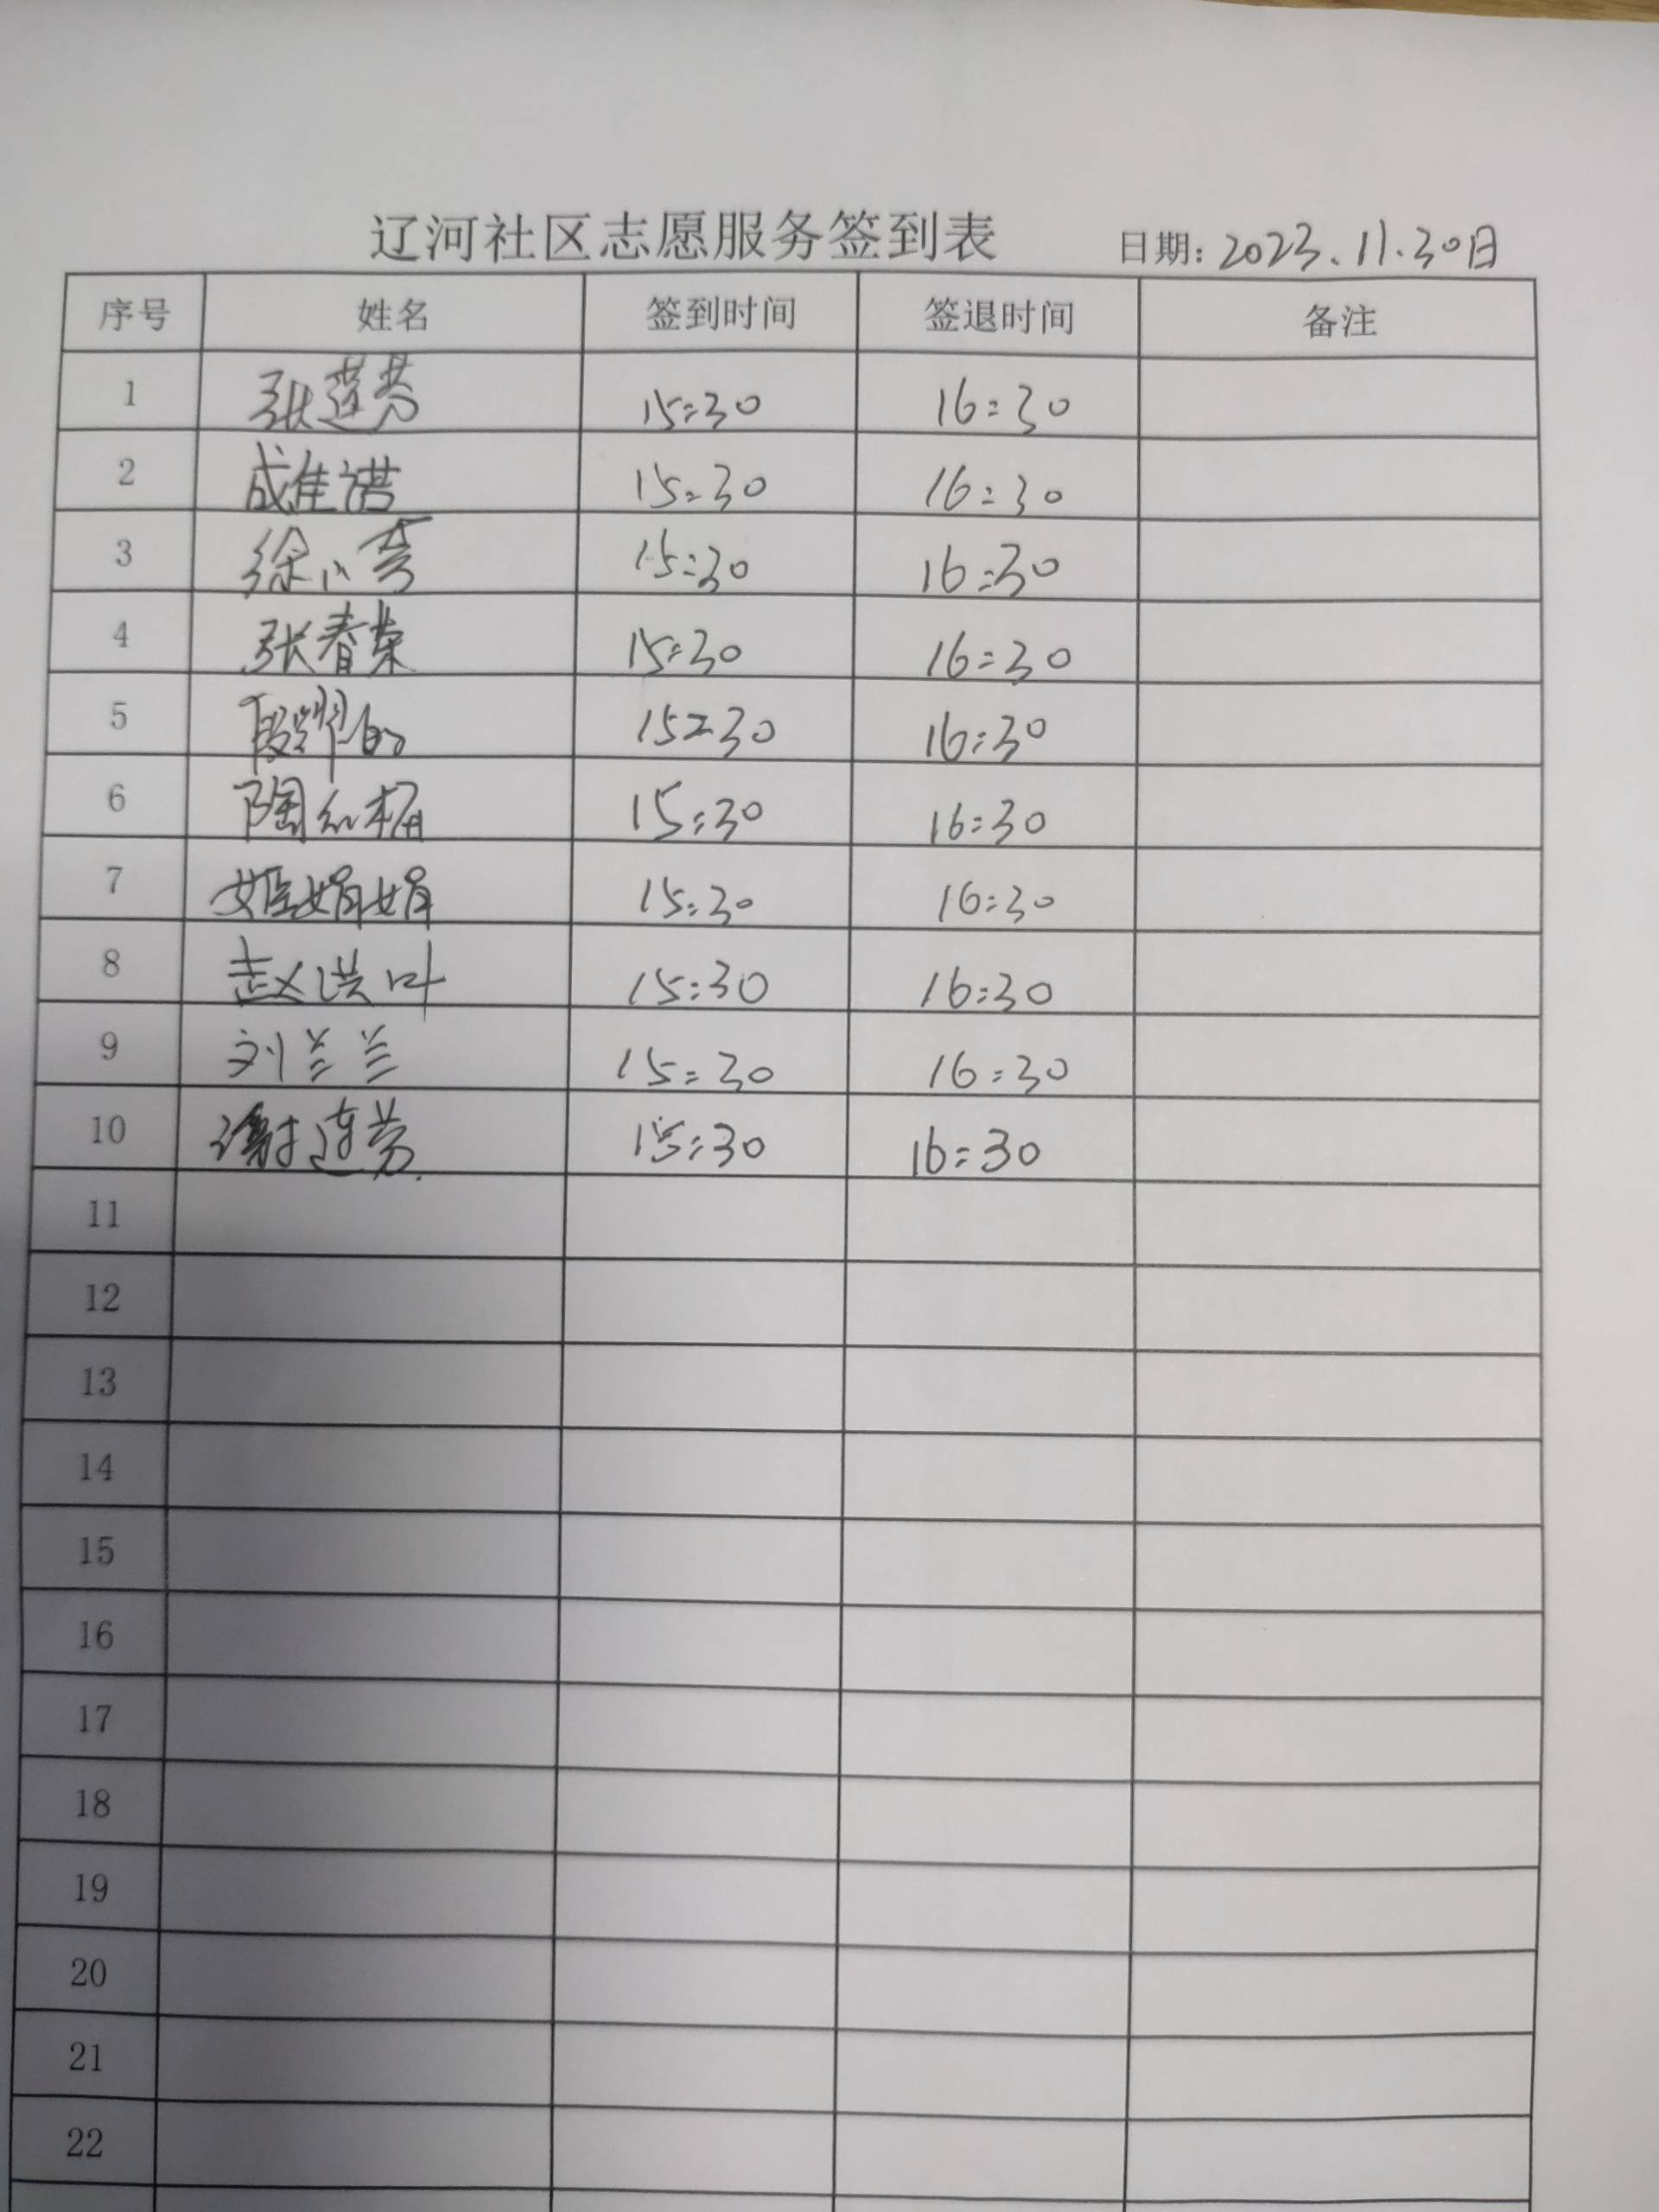 辽河社区志愿服务签到表 日期: 2023.11.30日
序号 姓名 签到时间 签退时间 备注
1 张莲芳 15:30 16:30
2 成佳诺 15:30 16:30
3 徐小弯 15:30 16:30
4 张春荣 15:30 16:30
5 15:30 16:30
6 陶红梅 15:30 16:30
7 姬娟娟 15:30 16:30
8 赵洪叶 15:30 16:30
9 刘兰兰 15:30 16:30
10 谢连芳 15:30 16:30
11
12
13
14
15
16
17
18
19
20
21
22